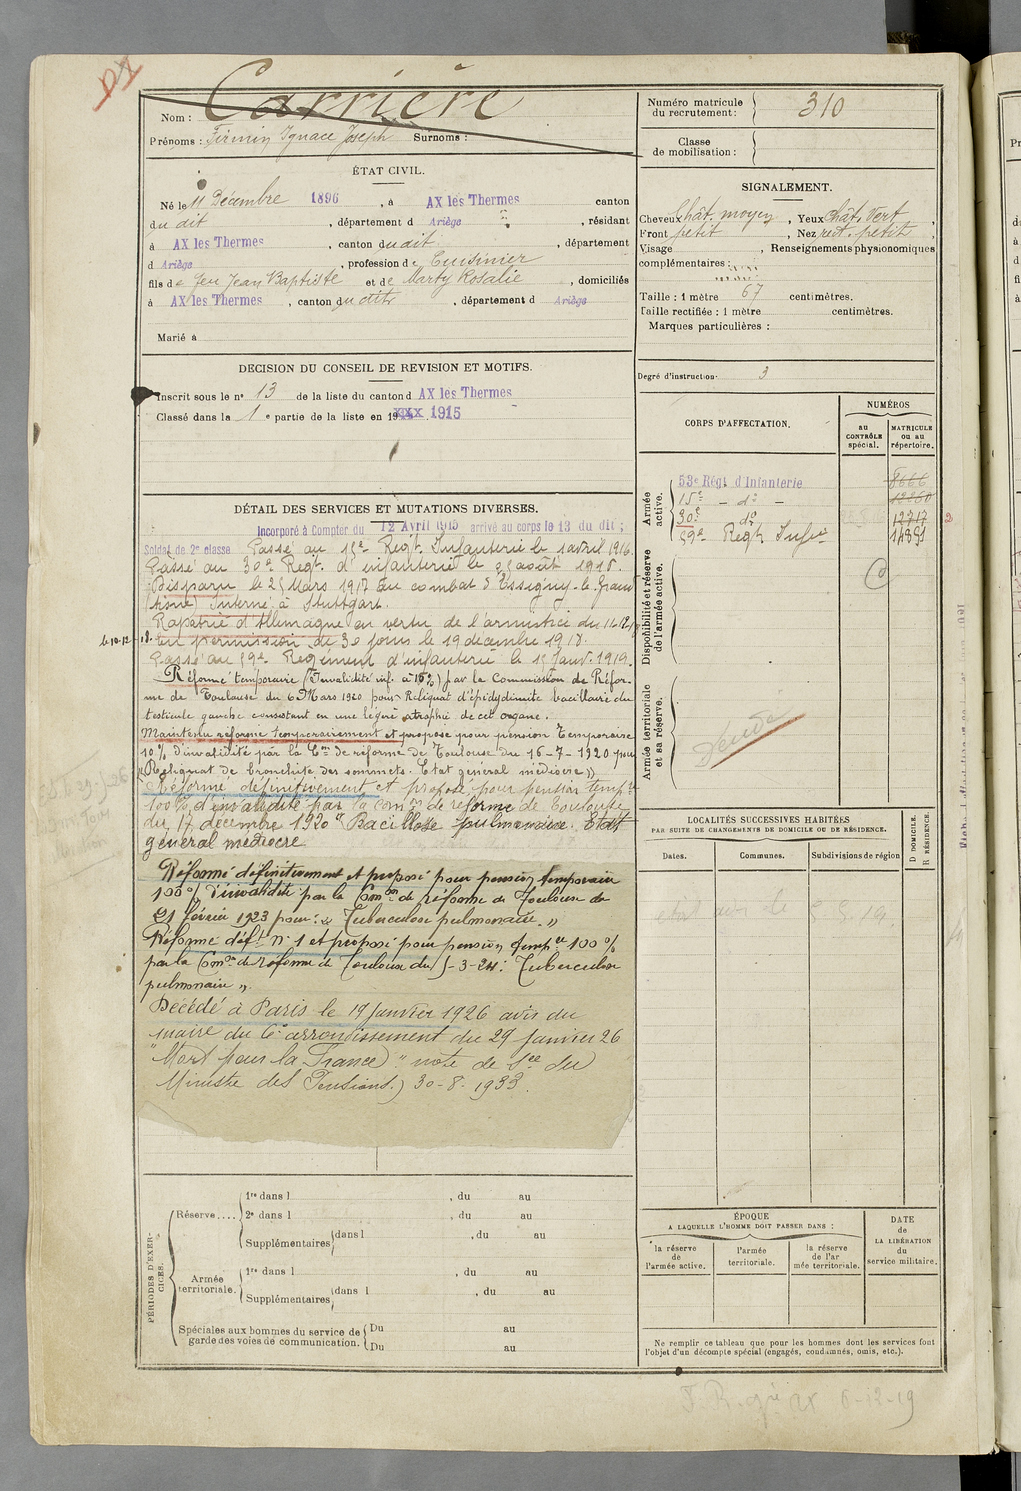 Nom : Carrière
Prénoms : Firmin Ignace Joseph Surnoms :
Numéro matricule du recrutement : 310
Classe de mobilisation :
ÉTAT CIVIL.
Né le 11 Décembre 1896, à AX les Thermes canton
du dit, département d Ariège, résidant
à AX les Thermes, canton du dit, département
d Ariège, profession de Cuisinier
fils de feu Jean Baptiste et de Marty Rosalie, domiciliés
à AX les Thermes, canton du dit, département d Ariège
Marié à
SIGNALEMENT.
Cheveux chât. moyen, Yeux chât. vert,
Front petit, Nez rect. petit,
Visage , Renseignements physionomiques
complémentaires :
Taille : 1 mètre 67 centimètres.
Taille rectifiée : 1 mètre centimètres.
Marques particulières :
DÉCISION DU CONSEIL DE REVISION ET MOTIFS.
Inscrit sous le nº 13 de la liste du canton d AX les Thermes
Classé dans la 1e partie de la liste en 19 1915
Degré d'instruction. 3
CORPS D'AFFECTATION.
NUMÉROS
AU CONTRÔLE spécial.
MATRICULE ou au répertoire.
Armée active.
53e Régt d'Infanterie 8666
15e - dº - 12260
30e dº 12717
59e Regt Infie 14891
Disponibilité et réserve de l'armée active.
Armée territoriale et sa réserve.
DÉTAIL DES SERVICES ET MUTATIONS DIVERSES.
Incorporé à Compter du 12 Avril 1915 arrivé au corps le 13 du dit ;
Soldat de 2e classe Passé au 15e Regt. Infanterie le 1 avril 1916.
Passé au 30e Regt. d'infanterie le août 1916.
Disparu le 25 Mars 1917 au combat d'Essigny-le-Grand
(Aisne) Interné à Stuttgart.
Rapatrié d'Allemagne en vertu de l'armistice du 11-12-18
le 10-12-18. En permission de 30 jours le 19 décembre 1918.
Passé au 59e Regiment d'infanterie le 15 Janv. 1919.
Réformé temporaire (Invalidité inf. à 10%) par la Commission de Réfor-
me de Toulouse du 6 Mars 1920 pour Reliquat d'épididymite bacillaire du
testicule gauche consistant en une légère atrophie de cet organe.
Maintenu réforme temporairement et proposé pour pension Temporaire
10% d'invalidité par la Con de réforme de Toulouse du 16-7-1920 pour
"Reliquat de bronchite des sommets. Etat général médiocre"
Réformé définitivement et proposé pour pension tempre
100% d'invalidité par la comon de réforme de Toulouse
du 17 décembre 1920 "Bacillose pulmonaire. Etat
général médiocre
Réformé définitivement et proposé pour pension temporaire
100% d'invalidité par la Comon de réforme de Toulouse du
21 février 1923 pour : "Tuberculose pulmonaire."
Réformé déft nº 1 et proposé pour pension tempre 100%
par la Comon de réforme de Toulouse du 5-3-24 : Tuberculose
pulmonaire".
Décédé à Paris le 19 Janvier 1926 avis du
maire du 6e arrondissement du 29 Janvier 26
"Mort pour la France" note de Sce du
Ministre des Pensions.) 30-8-1933.
LOCALITÉS SUCCESSIVES HABITÉES
PAR SUITE DE CHANGEMENTS DE DOMICILE OU DE RÉSIDENCE.
Dates. Communes. Subdivisions de région
D DOMICILE.
R RÉSIDENCE.
ÉPOQUE
A LAQUELLE L'HOMME DOIT PASSER DANS :
la réserve de l'armée active.
l'armée territoriale.
la réserve de l'ar mée territoriale.
DATE de LA LIBÉRATION du service militaire.
PÉRIODES D'EXERCICES.
Réserve.... 1re dans l , du au
2e dans l , du au
Supplémentaires dans l , du au
Armée territoriale. 1re dans l , du au
Supplémentaires dans l , du au
Spéciales aux hommes du service de garde des voies de communication. Du au
Du au
Ne remplir ce tableau que pour les hommes dont les services font
l'objet d'un décompte spécial (engagés, condamnés, omis, etc.).